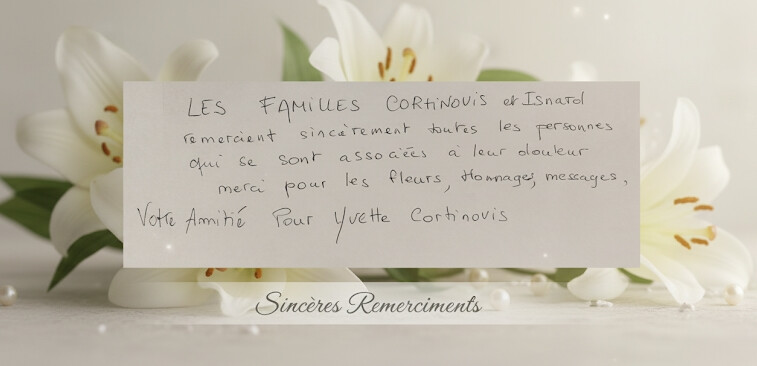 LES FAMILLES CORTINOVIS et Isnard
remercient sincèrement toutes les personnes
qui se sont associées à leur douleur
merci pour les fleurs, Hommages, messages,
Votre Amitié Pour Yvette Cortinovis
Sincères Remerciments